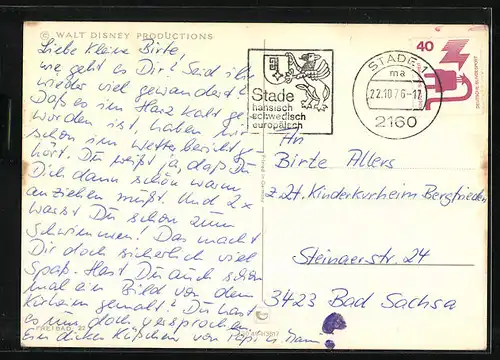 © WALT DISNEY PRODUCTIONS
Liebe kleine Birte,
wie geht es Dir? Seid ihr
wieder viel gewandert?
Daß es im Harz kalt ge-
worden ist, haben wir
schon im Wetterbericht ge-
hört. Du weißt ja, daß Du
Dich dann schön warm
anziehen mußt. Und 2x
warst Du schon zum
Schwimmen! Das macht
Dir doch sicherlich viel
Spaß. Hast Du auch schon
mal ein Bild von dem
Kurheim gemalt? Du hast
es uns doch versprochen.
Ein dickes Küßchen von Papi u. Mami
FREIBAD
Printed in Germany
Stade
hansisch
schwedisch
europäisch
STADE 1
ma
22.10.76-17
2160
40
DEUTSCHE BUNDESPOST
An
Birte Allers
z.Zt. Kinderkurheim Bergfrieden
Steinaerstr. 24
3423 Bad Sachsa